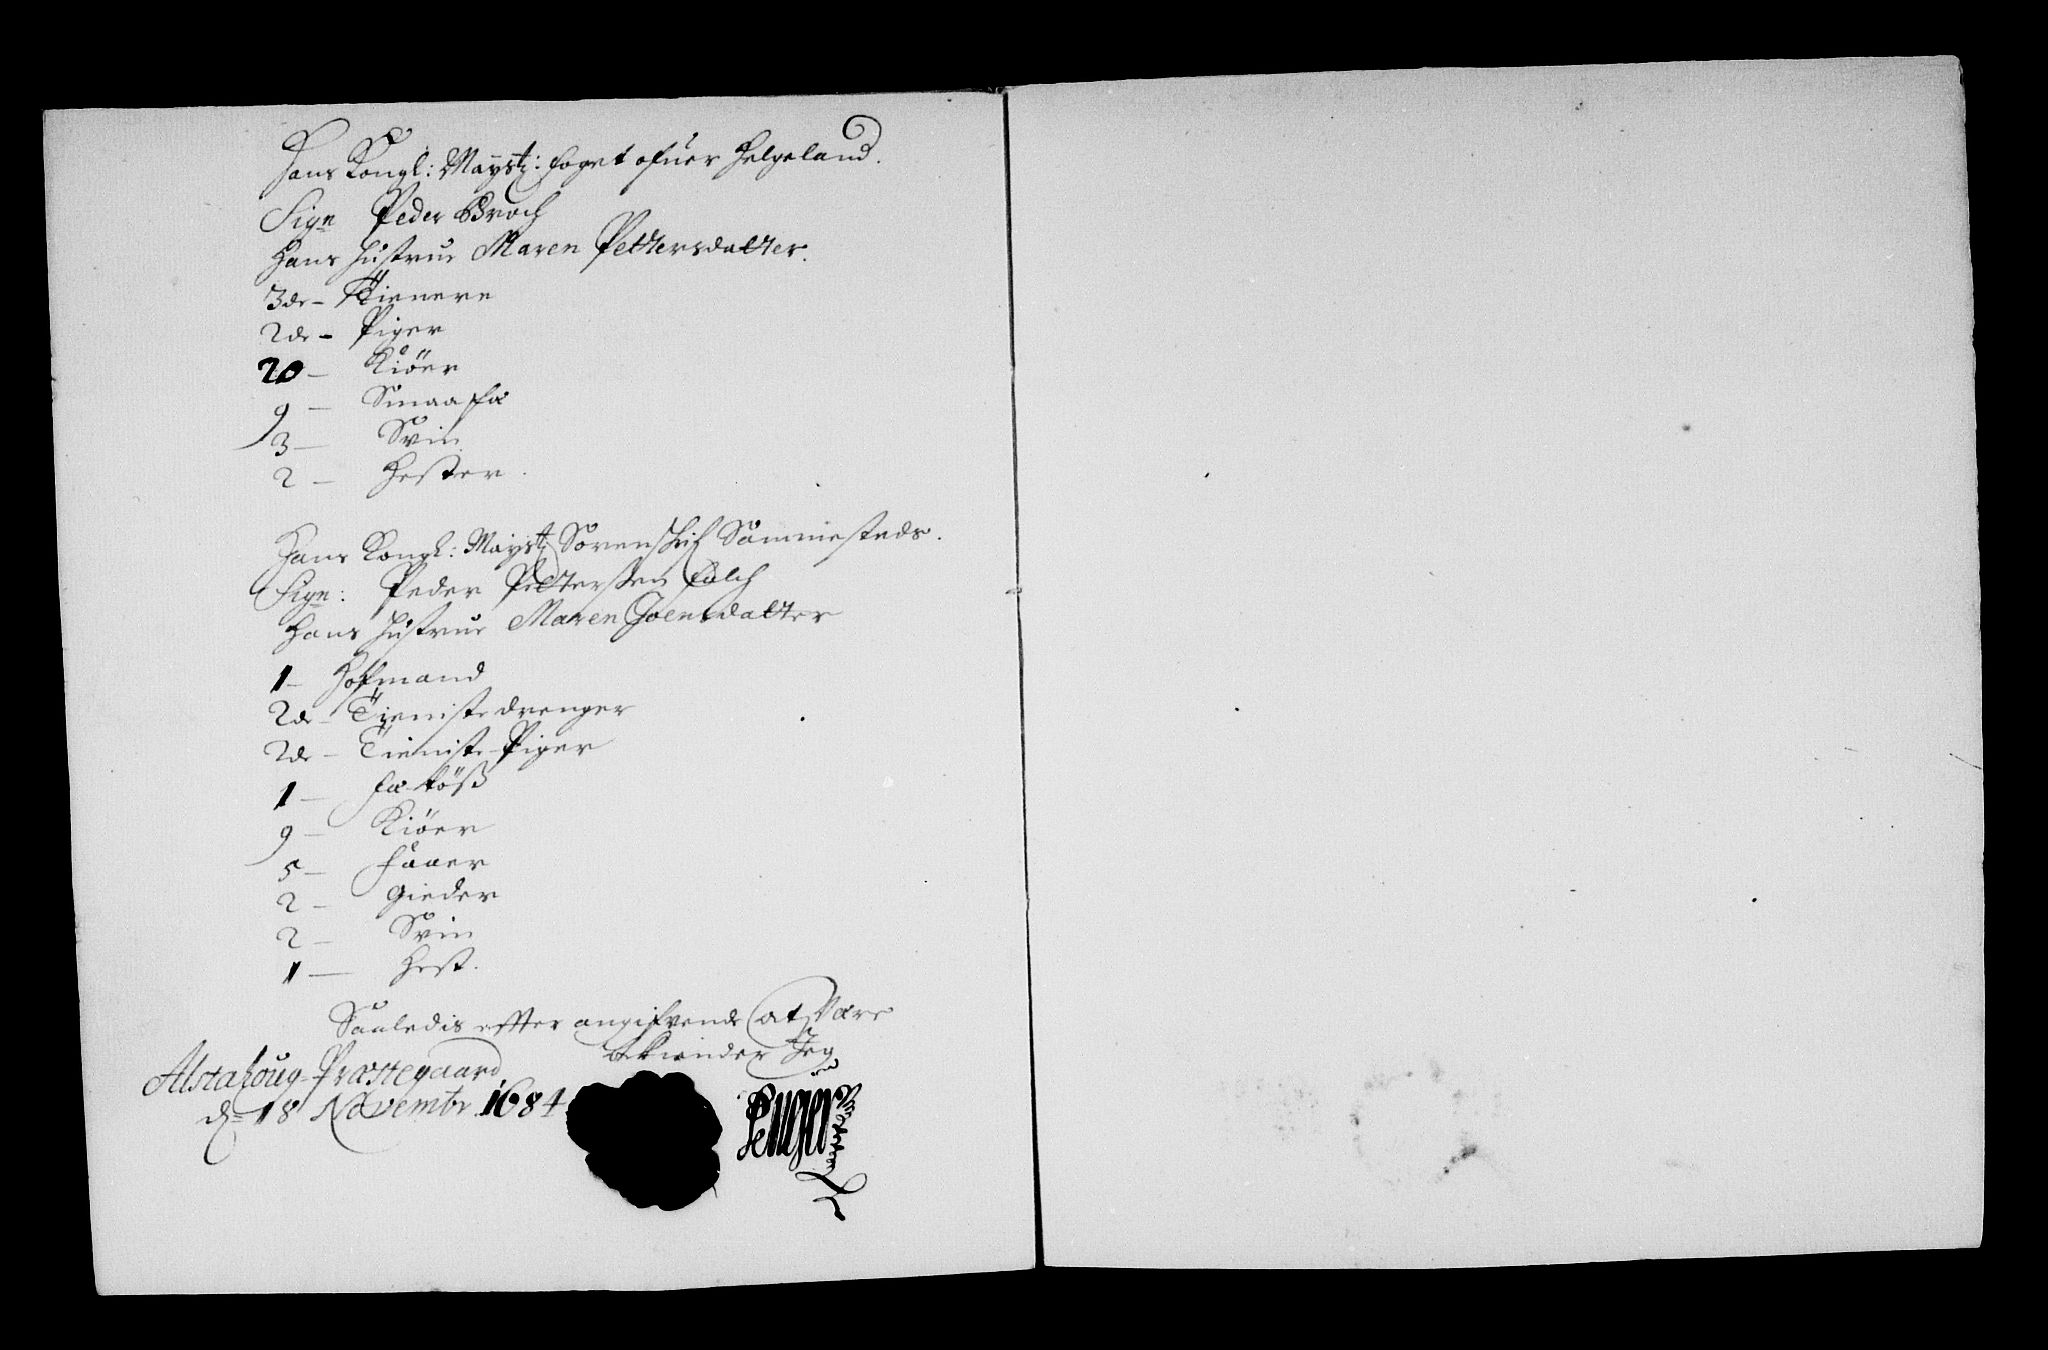 Hans Kongl: Mayst: foget ofuer Helgeland.
Sign Peder Broch
Hans Hustrue Maren Pettersdatter.
3de - Tienere
2de - Piger
20 - Kiöer
9 - Smaa fæ
3 - Svin
2 - Hester.
Hans Kongl: Mayst: Sorenschrif: Sammesteds.
Sign: Peder Petterssen Falch
Hans Hustrue Maren Joensdatter
1 - Hofmand
2de - Tieniste drenger
2de - Tieniste Piger
1 - fæ töß
9 - Kiöer
5 - faaer
2 - Gieder
2 - Svin
1 - Hest.
Saaledis effter angifvende at Være
bekiender Jeg
Alstahoug Præstegaard
d. 18 Novembr 1684